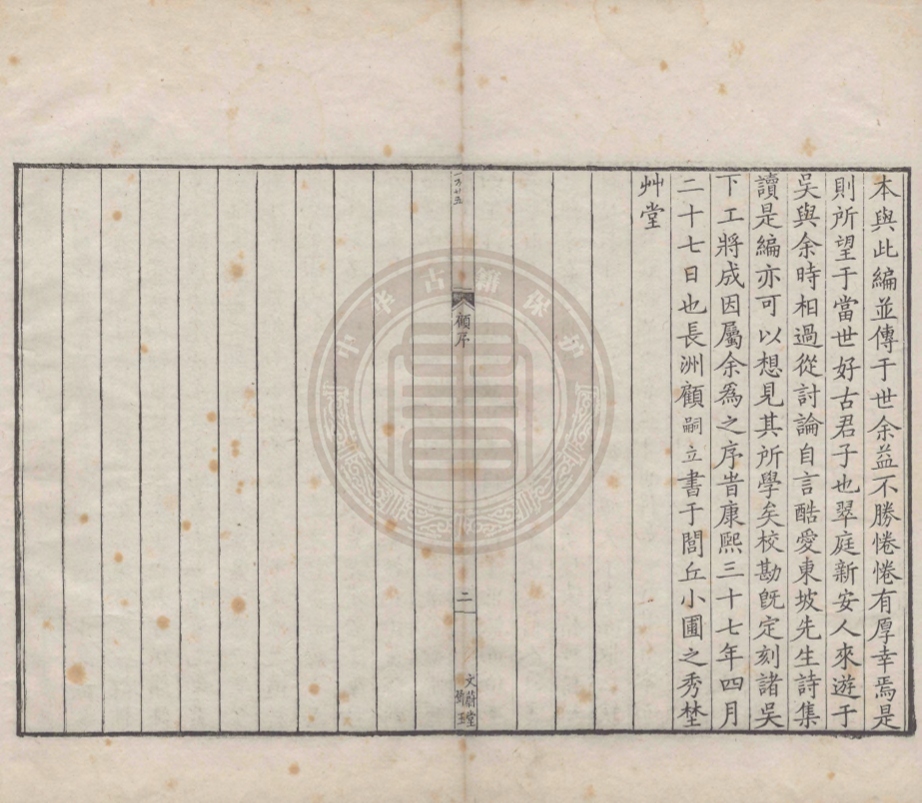 本與此編並傳于世余益不勝惓惓有厚幸焉是
則所望于當世好古君子也翠庭新安人來遊于
吳與余時相過從討論自言酷愛東坡先生詩集
讀是編亦可以想見其所學矣校勘旣定刻諸吳
下工將成因屬余爲之序旹康熙三十七年四月
二十七日也長洲顧嗣立書于閭丘小圃之秀埜
艸堂
顧序
二
文蔚堂
中华古籍保护